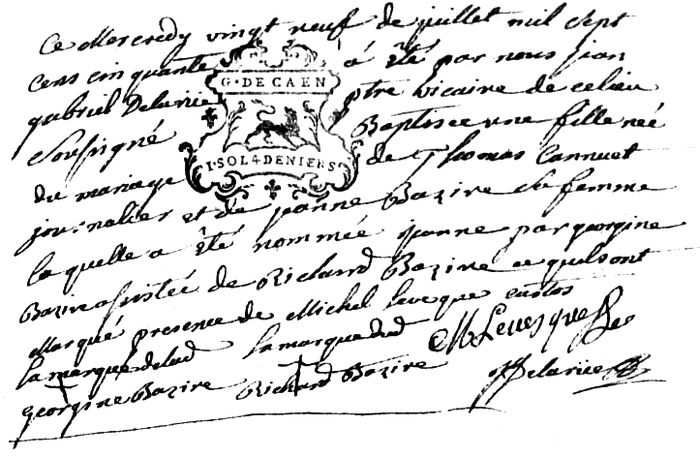 Ce Mercredy vingt neuf de juillet mil sept
cens cinquante a été par nous jean
gabriel Delarüe ptre vicaire de ce lieu
Soussigné Baptisee une fille née
du mariage de Thomas Cannuet
journalier et de jeanne Bazire sa femme
laquelle a été nommée jeanne par georgine
Bazire assistée de Richard Bazire ce quils ont
Marqué presence de Michel leveque custos
la marque de lad la marque dud M Levesque
georgine Bazire Richard Bazire Delarüe
G · DE CAEN
1 · SOL 4 DENIERS